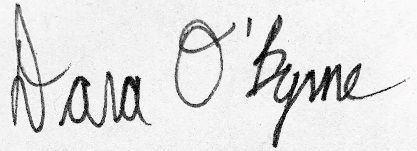 Dara O'Byrne